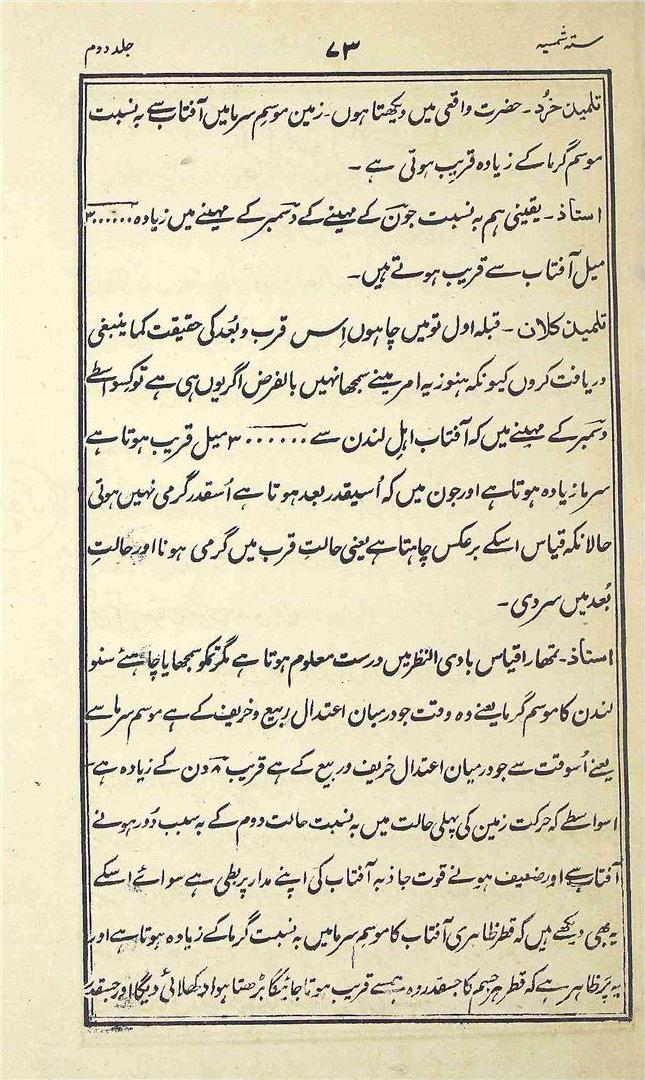 ستہ شمسیہ ۷۳ جلد دوم
تلمیذ خرد ۔ حضرت واقعی میں دیکھتا ہوں ۔ زمین موسم سرما میں آفتاب سے بہ نسبت
موسم گرما کے زیادہ قریب ہوتی ہے ۔
استاذ ۔ یقینی ہم بہ نسبت جون کے مہینے کے دسمبر کے مہینے میں زیادہ ۳۰۰۰۰۰۰
میل آفتاب سے قریب ہوتے ہیں ۔
تلمیذ کلان ۔ قبلہ اول تو میں چاہوں اِس قرب و بُعد کی حقیقت کما ینبغی
دریافت کروں کیونکہ ہنوز یہ امر مینے سمجھا نہیں بالفرض اگر یوں ہی ہے تو کسواسطے
دسمبر کے مہینے میں کہ آفتاب اہلِ لندن سے ۳۰۰۰۰۰۰ میل قریب ہوتا ہے
سرما زیادہ ہوتا ہے اور جون میں کہ اُسیقدر بعد ہوتا ہے اُسقدر گرمی نہیں ہوتی
حالانکہ قیاس اسکے برعکس چاہتا ہے یعنی حالتِ قرب میں گرمی ہونا اور حالتِ
بُعد میں سردی ۔
استاذ ۔ تمھارا قیاس بادی النظر میں درست معلوم ہوتا ہے مگر تمکو سمجھایا چاہئے سنو
لندن کا موسم گرما یعنے وہ وقت جو درمیان اعتدال ربیع و خریف کے ہے موسم سرما سے
یعنے اُسوقت سے جو درمیان اعتدال خریف و ربیع کے ہے قریب ۸ دن کے زیادہ ہے ۔
اسواسطے کہ حرکت زمین کی پہلی حالت میں بہ نسبت حالت دوم کے بہ سبب دور ہونے
آفتاب سے اور ضعیف ہونے قوت جاذبہ آفتاب کی اپنے مدار پر بطی ہے سوائے اسکے
یہ بھی دیکھے ہیں کہ قطر ظاہری آفتاب کا موسم سرما میں بہ نسبت گرما کے زیادہ ہوتا ہے اور
یہ پر ظاہر ہے کہ قطر ہر جسم کا جسقدر وہ ہمسے قریب ہوتا جائیگا بڑھتا ہوا دکھلائی دیگا اور جسقدر